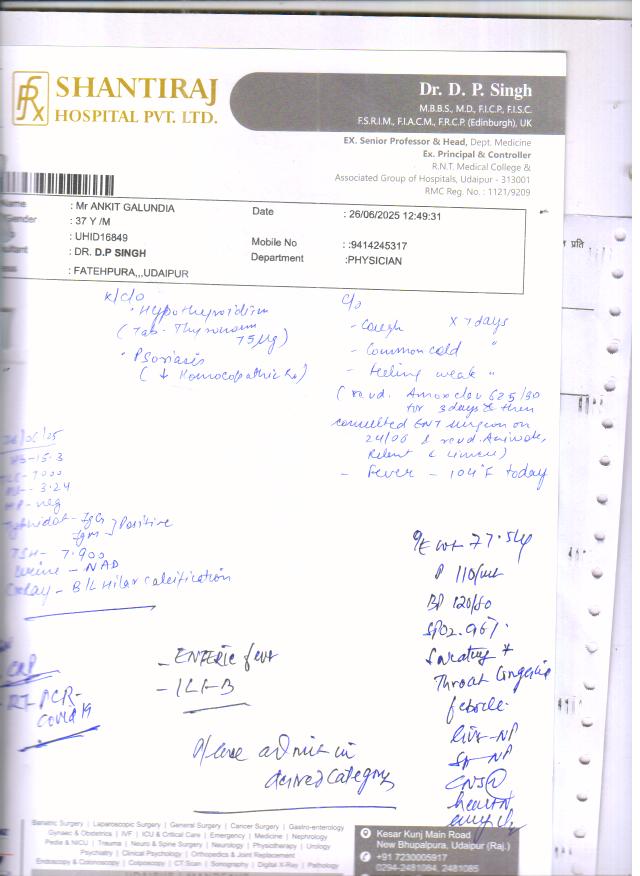 SHANTIRAJ
HOSPITAL PVT. LTD.
Dr. D. P. Singh
M.B.B.S., M.D., F.I.C.P., F.I.S.C.
F.S.R.I.M., F.I.A.C.M., F.R.C.P. (Edinburgh), UK
EX. Senior Professor & Head, Dept. Medicine
Ex. Principal & Controller
R.N.T. Medical College &
Associated Group of Hospitals, Udaipur - 313001
RMC Reg. No. : 1121/9209
Name : Mr ANKIT GALUNDIA
Date : 26/06/2025 12:49:31
Gender : 37 Y /M
: UHID16849
Mobile No : :9414245317
: DR. D.P SINGH
Department :PHYSICIAN
: FATEHPURA,,,UDAIPUR
प्रति
K/C/O
• Hypothyroidism
(Tab- Thyronorm
75µg)
• Psoriasis
(↓ Homoeopathic Rx)
C/o
- Cough x 7 days
- Common cold "
- Feeling weak "
(recvd. Amoxclav 625/BD
for 3 days & then
consulted ENT surgeon on
24/06 & recvd.
- Fever - 104°F today
/06/25
HB-15.3
TLC-7000
- 3.24
MP- neg
Typhidot- IgG
IgM } Positive
TSH- 7.900
Urine - NAD
- B/L Hilar calcification
O/E wt 77.54
P 110/
BP 120/80
SPO2-96%
Sweating +
Throat
febrile
liver-NP
SP-NP
CNS
- ENTERIC fever
- ILI-B
CAP
- RT PCR-
Covid 19
Please admit in
desired category
Bariatric Surgery | Laparoscopic Surgery | General Surgery | Cancer Surgery | Gastro-enterology
Gynaec & Obstetrics | IVF | ICU & Critical Care | Emergency | Medicine | Nephrology
Pedia & NICU | Trauma | Neuro & Spine Surgery | Neurology | Physiotherapy | Urology
Psychiatry | Clinical Psychology | Orthopedics & Joint Replacement
Endoscopy & Colonoscopy | Colposcopy | CT Scan | Sonography | Digital X-Ray | Pathology
Kesar Kunj Main Road
New Bhupalpura, Udaipur (Raj.)
+91 7230005917
0294-2481084, 2481085